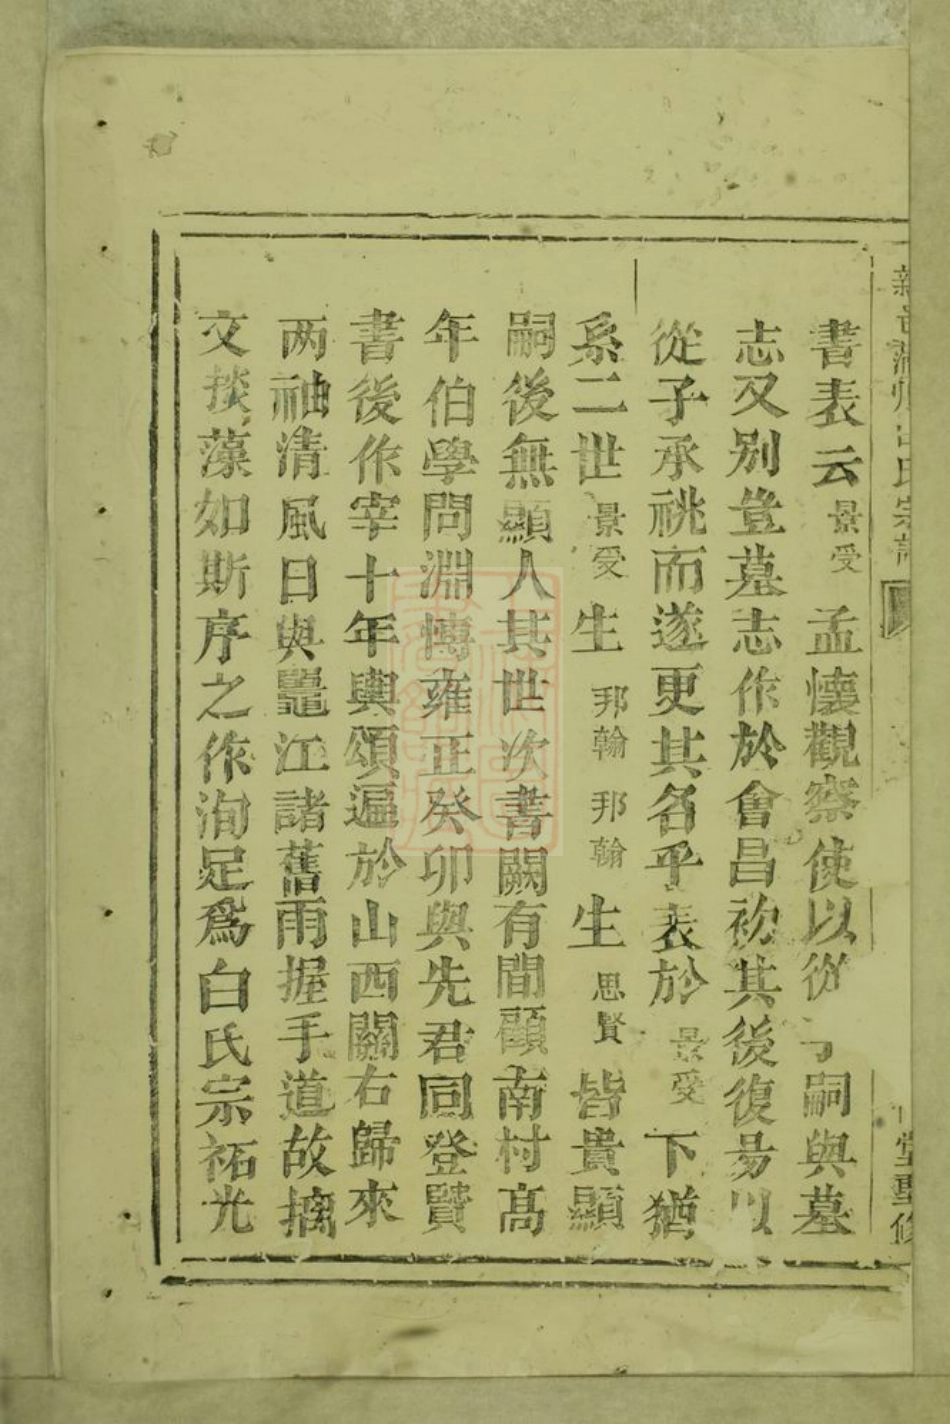 書表云景受孟懷觀察使以從子嗣與墓
志又別豈墓志作於會昌初其後復易以
從子承祧而遂更其名乎表於景受下猶
系二世景受生邦翰邦翰生思賢皆貴顯
嗣後無顯人其世次書闕有間顧南村高
年伯學問淵博雍正癸卯與先君同登賢
書後作宰十年輿頌遍於山西關右歸來
两袖清風日與鼉江諸舊雨握手道故摛
文掞藻如斯序之作洵足爲白氏宗祏光